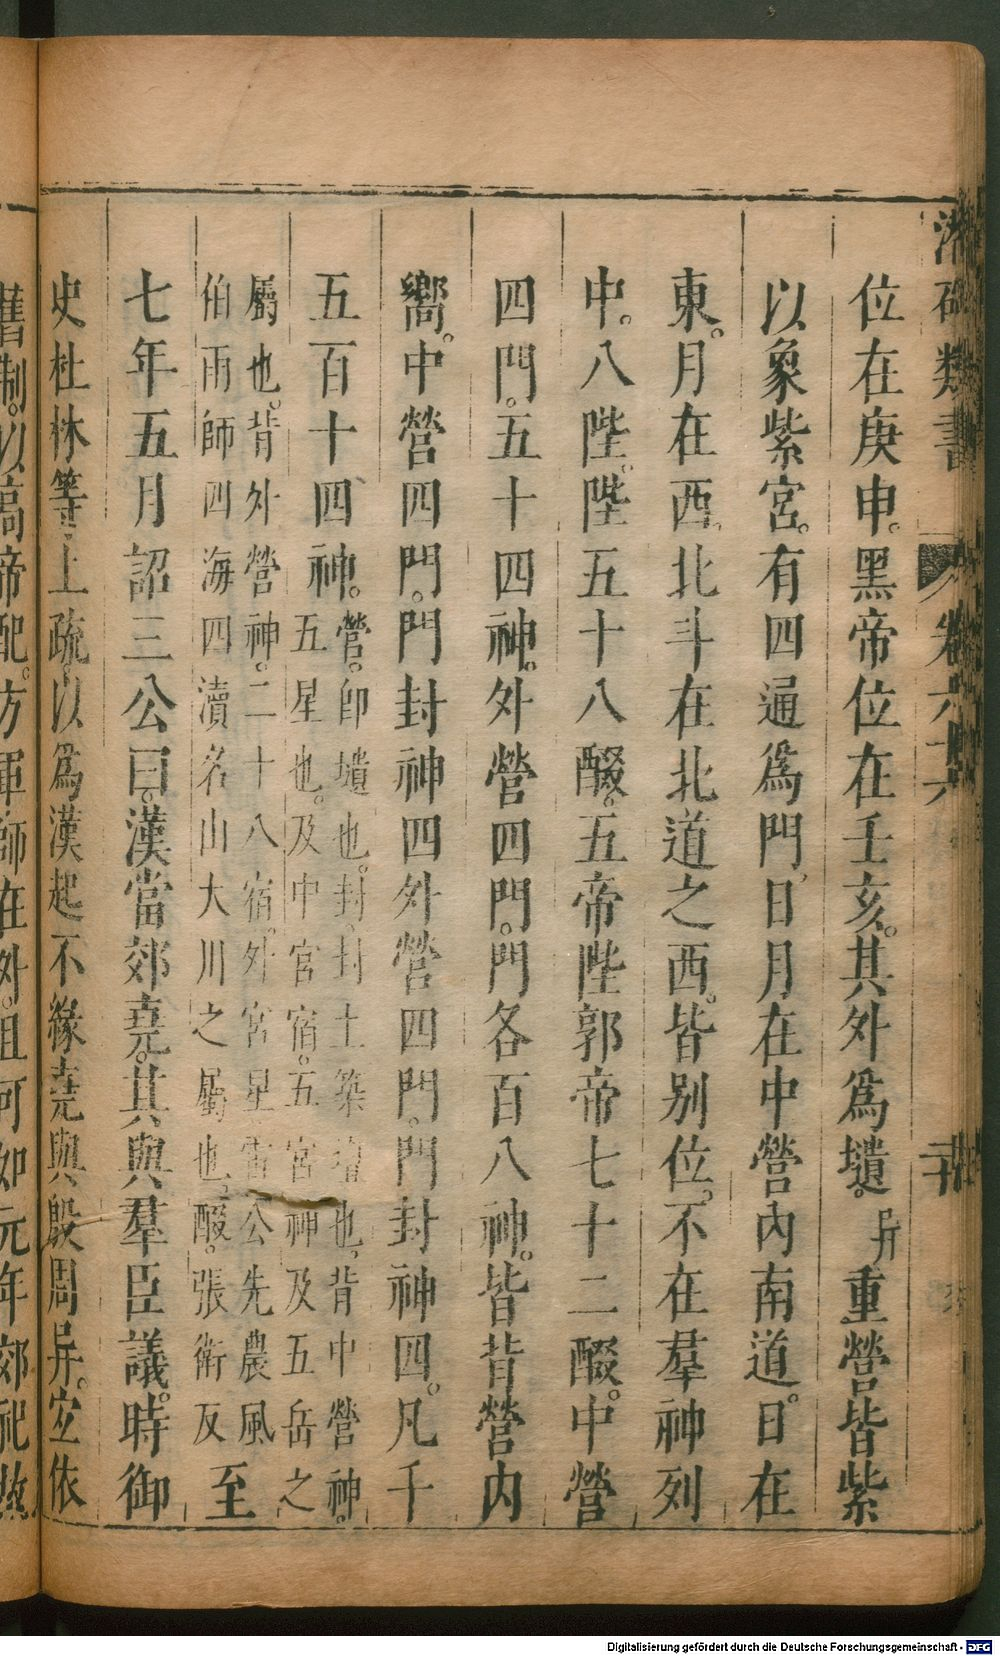 類書 卷六十六
位在庚申。黑帝位在壬亥。其外爲壝。重營皆紫
以象紫宮。有四通爲門。日月在中營內南道。日在
東。月在西。北斗在北道之西。皆別位。不在羣神列
中。八陛。陛五十八醊。五帝陛郭帝七十二醊。中營
四門。五十四神。外營四門。門各百八神。皆背營内
嚮。中營四門。門封神四。外營四門。門封神四。凡千
五百十四神。營。卽壝也。封。封土築也。背中營神。
五星也。及中官宿。五官神及五岳之
屬也。背外營神。二十八宿。外宮星雷公先農風
伯雨師四海四瀆名山大川之屬也。醊。張衛反 至
七年五月詔三公曰。漢當郊堯。其與羣臣議。時御
史杜林等上疏。以爲漢起不緣堯與殷周异。宜依
舊制。以高帝配。方軍師在外。且可如元年郊祀故
Digitalisierung gefördert durch die Deutsche Forschungsgemeinschaft - DFG